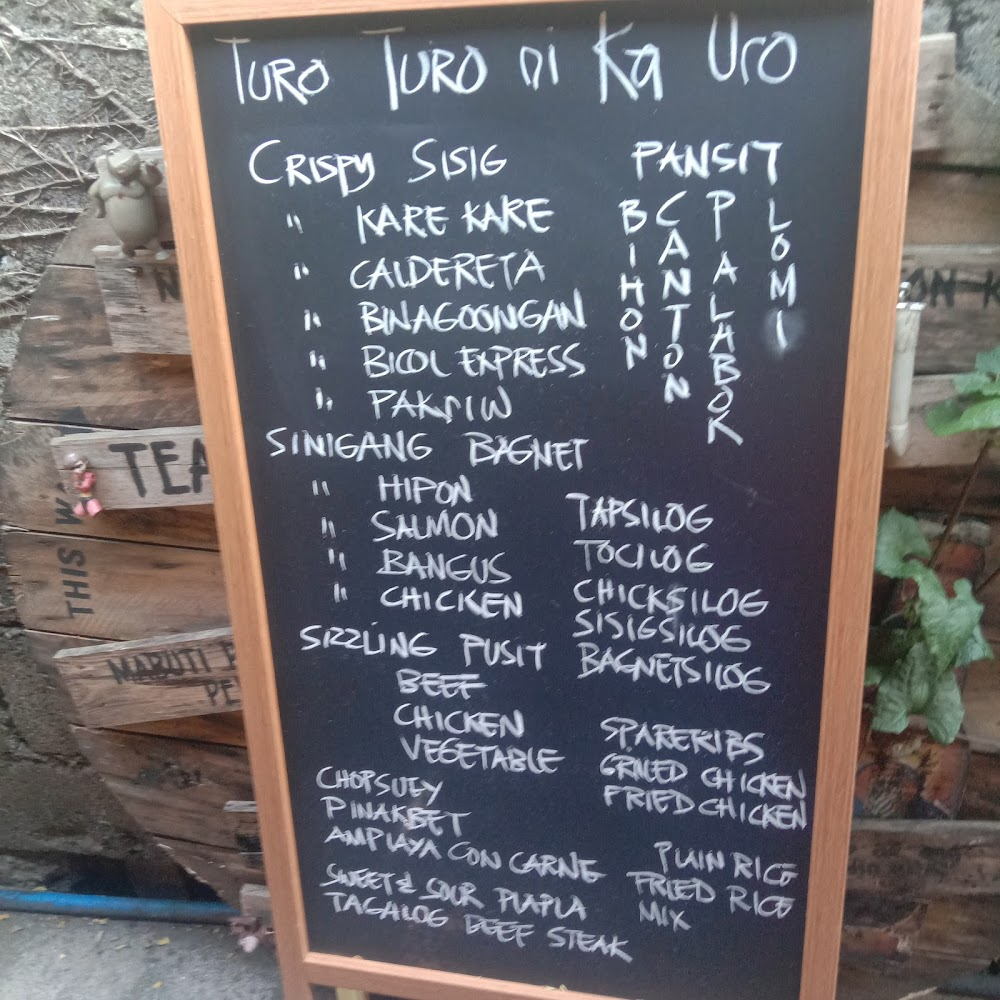 TURO TURO ni Ka Uro
CRISPY SISIG
" KARE KARE
" CALDERETA
" BINAGOONGAN
" BICOL EXPRESS
" PAKSIW
SINIGANG BAGNET
" HIPON
" SALMON
" BANGUS
" CHICKEN
SIZZLING PUSIT
BEEF
CHICKEN
VEGETABLE
CHOPSUEY
PINAKBET
AMPLAYA CON CARNE
SWEET & SOUR PLAPLA
TAGALOG BEEF STEAK
PANSIT
BIHON
CANTON
PALABOK
LOMI
TAPSILOG
TOCILOG
CHICKSILOG
SISIGSILOG
BAGNETSILOG
SPARERIBS
GRILED CHICKEN
FRIED CHICKEN
PLAIN RICE
FRIED RICE
MIX
TEA
THIS W
MABUTI P
PE
ON K
N